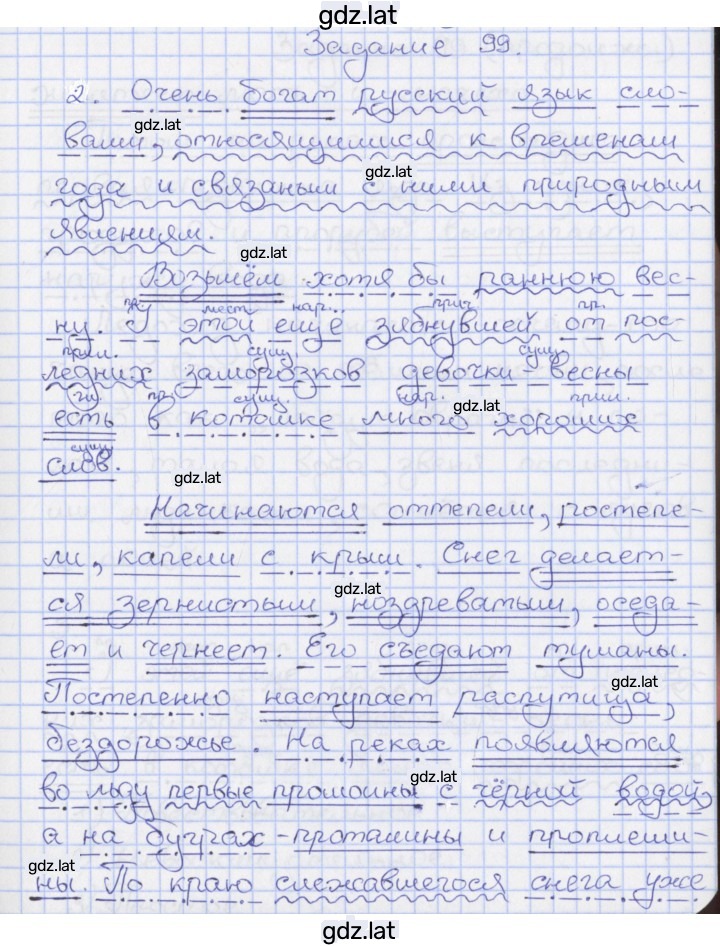 gdz.lat
Задание 99.
2. Очень богат русский язык сло-
gdz.lat
вами, относящимися к временам
gdz.lat
года и связаным с ними природным
явлениям.
gdz.lat
Возьмём хотя бы раннюю вес-
мест. нар. прич. пр.
ну. У этой ещё зябнувшей от пос-
прил. сущ. сущ.
ледних заморозков девочки-весны
гл. пр. сущ. gdz.lat нар. прил.
есть в котомке много хороших
сущ.
слов.
gdz.lat
Начинаются оттепели, ростепе-
ли, капели с крыш. Снег делает-
gdz.lat
ся зернистым, ноздреватым, оседа-
ет и чернеет. Его съедают туманы.
gdz.lat
Постепенно наступает распутица,
бездорожье. На реках появляются
gdz.lat
во льду первые промоины с чёрной водой,
а на буграх - проталины и проплеши-
gdz.lat
ны. По краю слежавшегося снега уже
gdz.lat